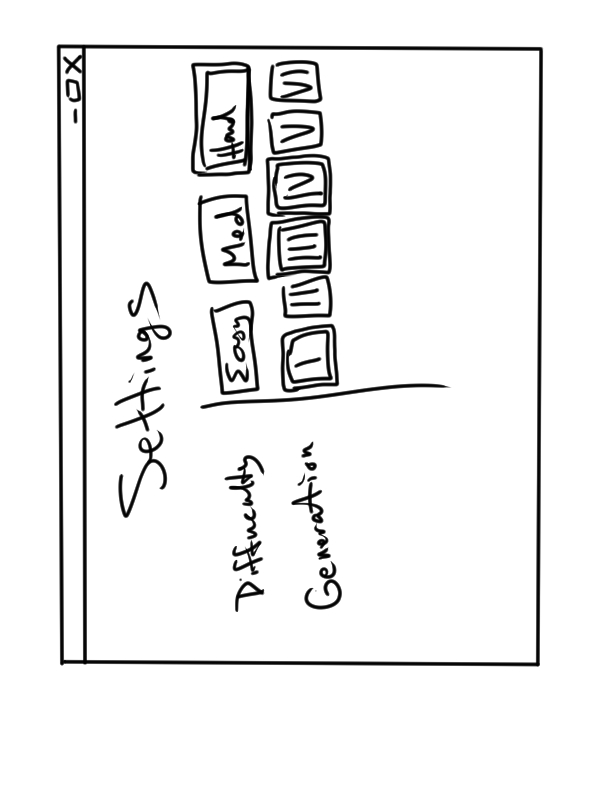 Settings
Diffuculty Easy Med Hard
Generation I II III IV V VI